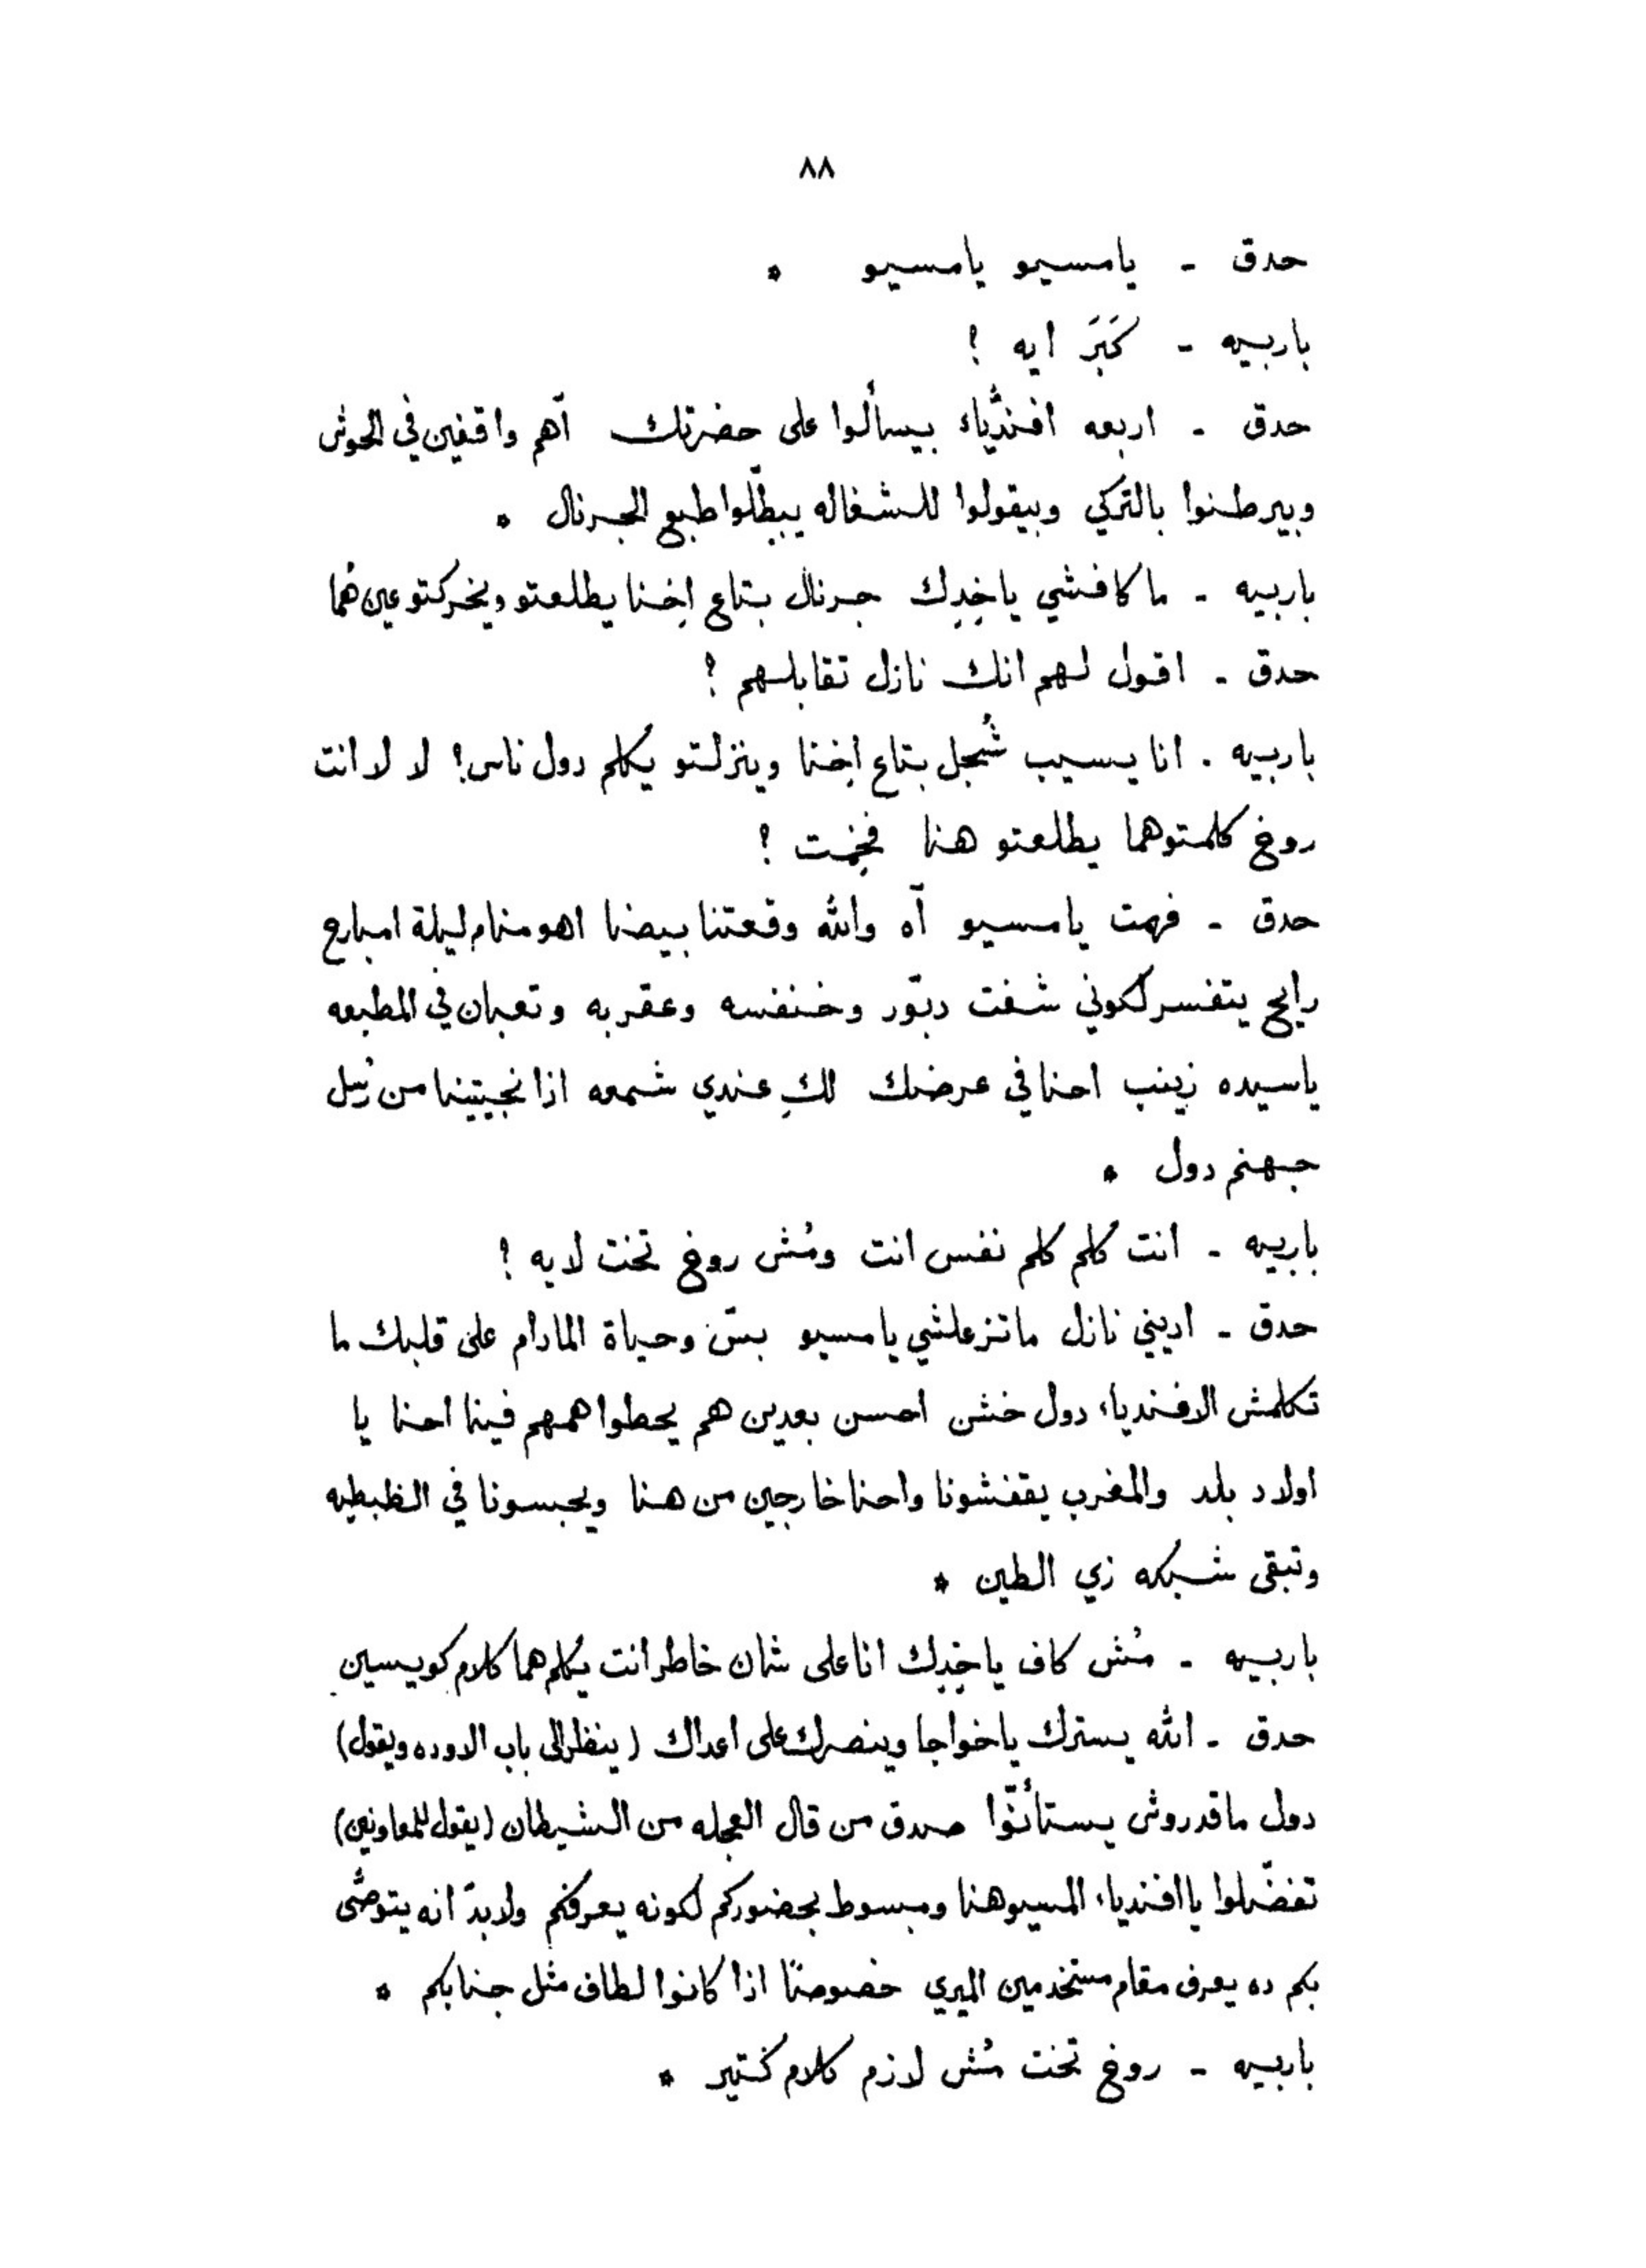 ٨٨
حدق - يامسيو يامسيو *
باربيه - كَبَرَ ايه ؟
حدق - اربعه افنديّاء بيسألوا على حضرتك آهم واقفين في الحوش
وبيرطنوا بالتركي وبيقولوا للشغاله يبطّلوا طبع الجرنال *
باربيه - ما كافشي ياخِدِك جرنال بتاع اِخنا يطلعتو ويخركتو عين هُما
حدق - اقول لهم انك نازل تقابلهم ؟
باربيه . انا يسيب شُجل بتاع اِخنا وينزلتو يُكلم دول ناس؟ لا لا انت
روخ كلمتوهما يطلعتو هنا فخِمت ؟
حدق - فهمت يامسيو آه والله وقعتنا بيضا اهو منام ليلة امبارح
رايح يتفسر لكوني شفت دبّور وخنفسه وعقربه وتعبان في المطبعه
ياسيده زينب احنا في عرضك لكِ عندي شمعه اذا نجيتينا من رُسل
جهنم دول *
باربيه - انت كُلم كلم نفس انت ومُش روخ تخت لايه ؟
حدق - اديني نازل ماتزعلشي يامسيو بسّ وحياة المادام على قلبك ما
تكلمش الافندياء دول خشن احسن بعدين هم يحطوا همهم فينا احنا يا
اولاد بلد والمغرب يقفشونا واحنا خارجين من هنا ويحبسونا في الظبطيه
وتبقى شبكه زي الطين *
باربيه - مُش كاف ياخِدِك انا على شان خاطر انت يُكلم هما كلام كويسين
حدق - الله يسترك ياخواجا وينصرك على اعداك (ينظر الى باب الاوده ويقول)
دول ماقدروش يستأنّوا صدق من قال العجله من الشيطان (يقول للمعاونين)
تفضّلوا يا افندياء المسيو هنا ومبسوط بحضوركم لكونه يعرفكم ولابدّ انه يتوصّى
بكم ده يعرف مقام مستخدمين الميري خصوصًا اذا كانوا لطاف مثل جنابكم *
باربيه - روخ تخت مُش لازم كلام كُتير *